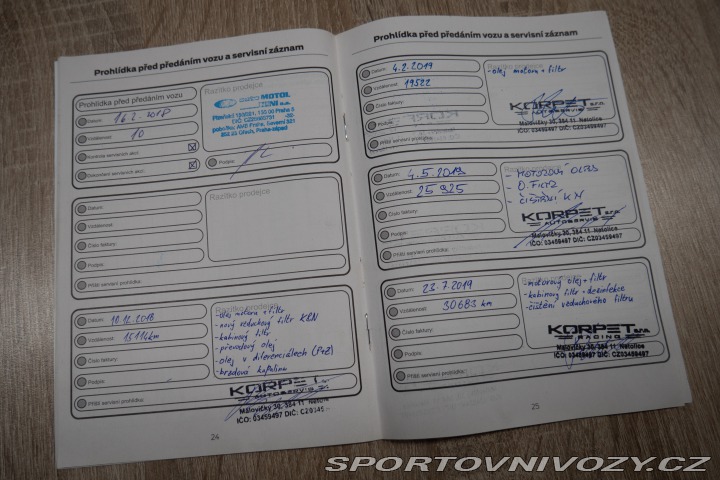 Prohlídka před předáním vozu a servisní záznam
Prohlídka před předáním vozu
Datum:
16.2.
Vzdálenost:
10
Kontrola servisních akcí:
Dokončení servisních akcí:
Razítko prodejce
auto MOTOL
BENI a.s.
pobočka: AMB Praha,
252 25 Ořech, Praha-západ
Podpis:
Datum:
Vzdálenost:
Číslo faktury:
Podpis:
Příští servisní prohlídka:
Razítko prodejce
Datum: 10.12.2018
Vzdálenost: 15114km
Číslo faktury:
Podpis:
Příští servisní prohlídka:
Razítko prodejce
- olej motoru + filtr
- nový vzduchový filtr K&N
- kabinový filtr
- převodový olej
- olej v diferenciálech (P+Z)
- brzdová kapalina
KORPET
AUTOSERVIS
Malovičky 30, 384 11 Netolice
IČO: 03459497 DIČ: CZ0345
24
Prohlídka před předáním vozu a servisní záznam
Datum: 4.2.2019
Vzdálenost: 19522
Číslo faktury:
Podpis:
Příští servisní prohlídka:
Razítko prodejce
- olej motoru + filtr
KORPET s.r.o.
AUTOSERVIS
Malovičky 30, 384 11 Netolice
IČO: 03459497 DIČ: CZ03459497
Datum: 4.5.2019
Vzdálenost: 25 925
Číslo faktury:
Podpis:
Příští servisní prohlídka:
Razítko prodejce
- MOTOROVÝ OLEJ
- O. FILTR
- ČIŠTĚNÍ KN
KORPET s.r.o.
AUTOSERVIS
Malovičky 30, 384 11 Netolice
IČO: 03459497 DIČ: CZ03459497
Datum: 23.7.2019
Vzdálenost: 30683 km
Číslo faktury:
Podpis:
Příští servisní prohlídka:
Razítko prodejce
- motorový olej + filtr
- kabinový filtr + dezinfekce
- čištění vzduchového filtru
KORPET s.r.o.
RACING
Malovičky 30, 384 11 Netolice
IČO: 03459497 DIČ: CZ03459497
25
SPORTOVNIVOZY.CZ